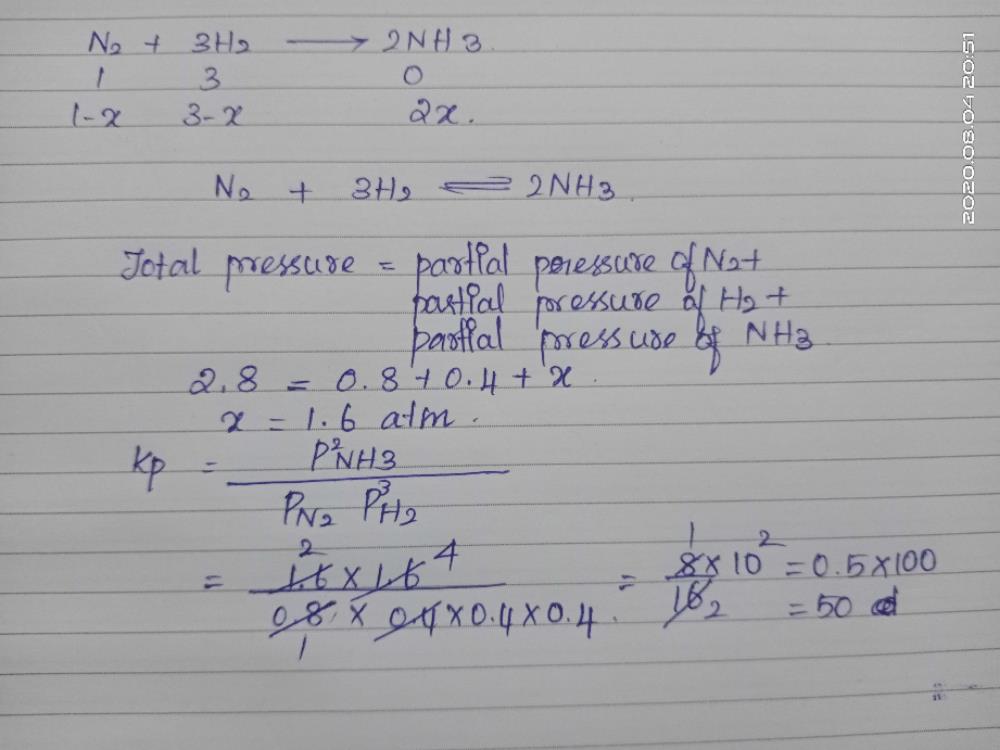 N₂ + 3H₂ ⟶ 2NH3.
1 3 0
1-x 3-x 2x.
N₂ + 3H₂ ⇌ 2NH3.
Total pressure = partial poressure of N₂+
partial pressure of H₂ +
partial pressure of NH3
2.8 = 0.8 + 0.4 + x.
x = 1.6 atm.
Kp = P²NH3 / PN₂ P³H₂
= 1.6 × 1.6 / 0.8 × 0.4 × 0.4 × 0.4. = 8 × 10² / 16 = 0.5 × 100
2 4 1 1 2
= 50
2020.08.04 20:51